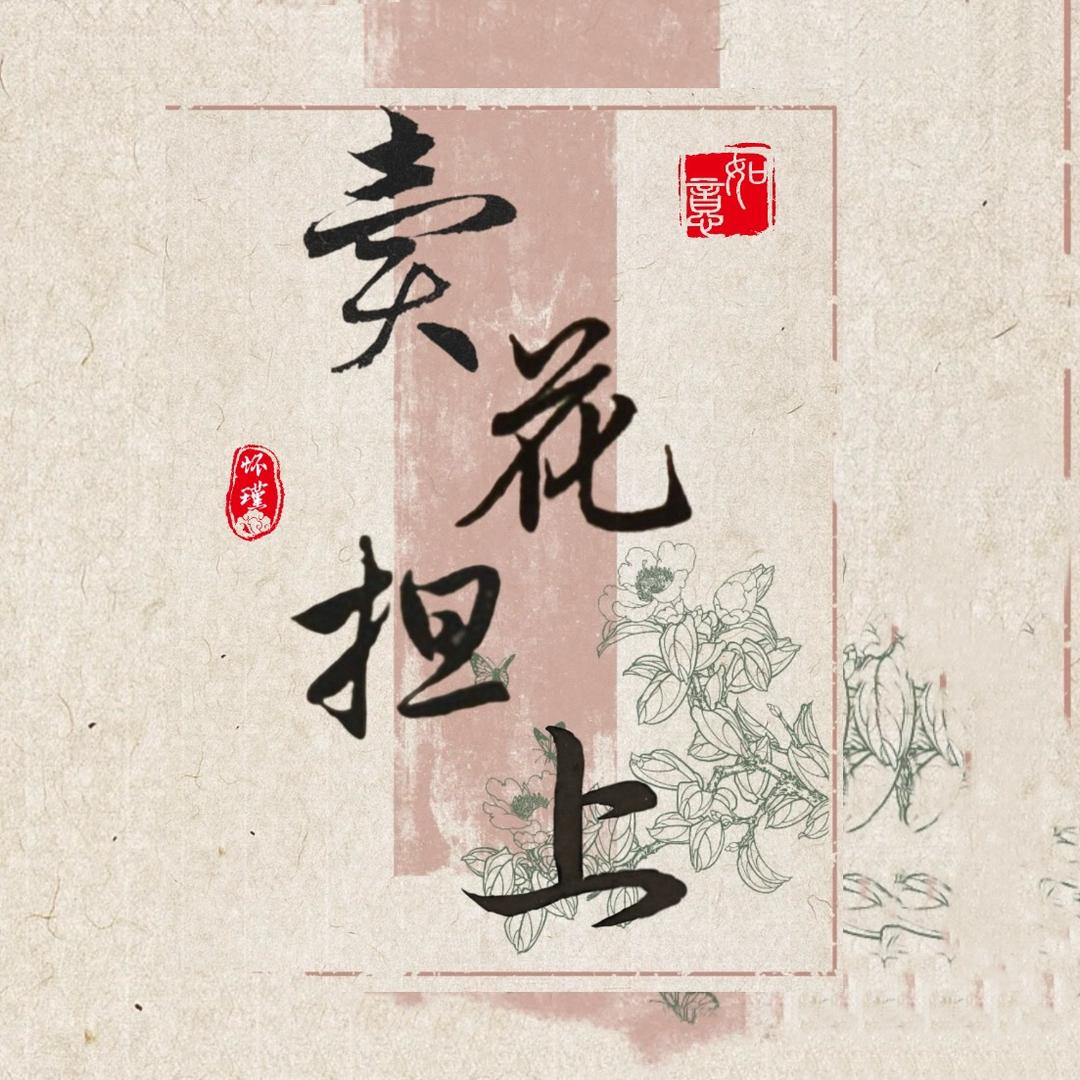 卖花担上
如意
怀瑾